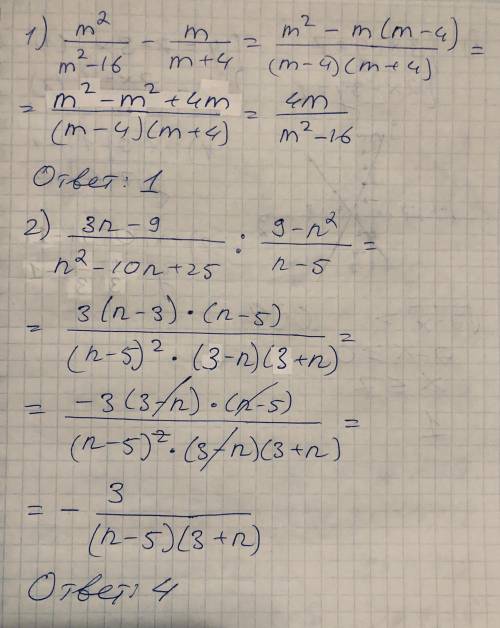 1) m²/(m²-16) - m/(m+4) = (m² - m(m-4))/((m-4)(m+4)) =
= (m² - m² + 4m)/((m-4)(m+4)) = 4m/(m²-16)
Ответ: 1
2) (3n-9)/(n²-10n+25) : (9-n²)/(n-5) =
= (3(n-3)·(n-5))/((n-5)²·(3-n)(3+n)) =
= (-3(3-n)·(n-5))/((n-5)²·(3-n)(3+n)) =
= - 3/((n-5)(3+n))
Ответ: 4